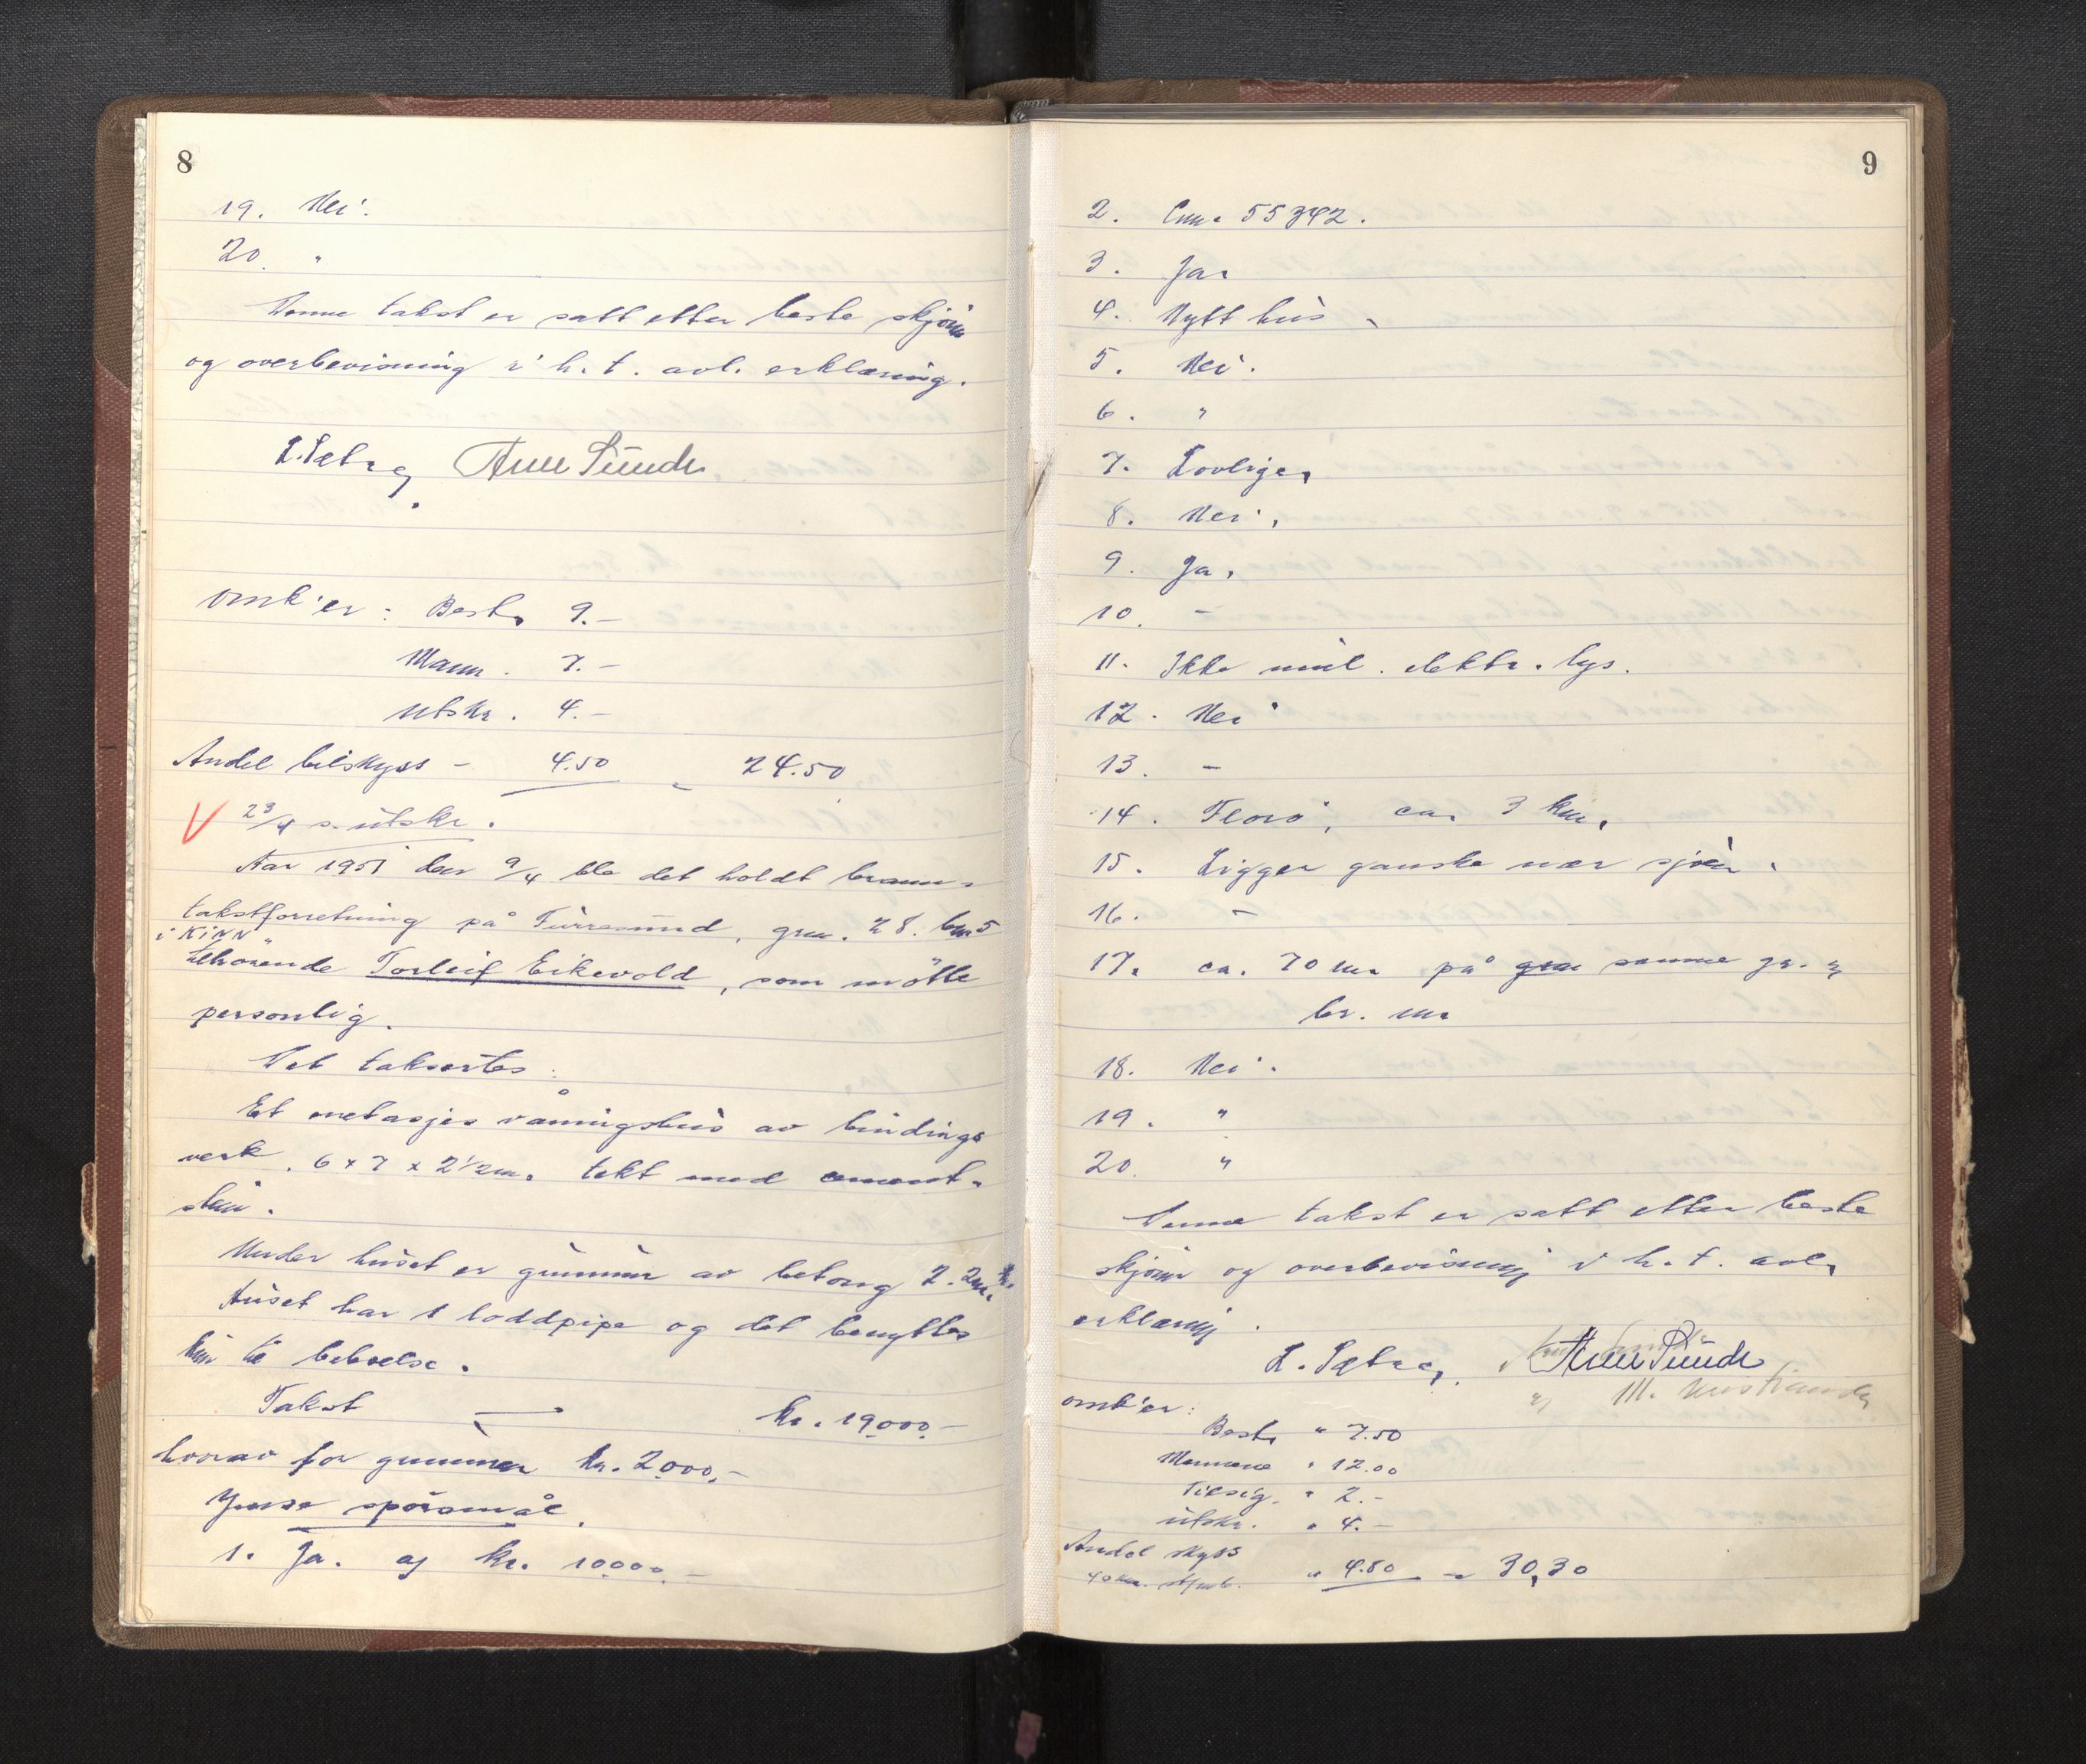 8
19. Nei.
20. "
Denne takst er satt etter beste skjönn
og overbevisning i h.t. avl. erklæring.
Arne Sunde
Omk'er: Best. 9.-
Mann. 7.-
Utskr. 4.-
Andel bilskyss - 4.50 = 24.50
V 23/4 s. utskr.
Aar 1951 den 9/4 ble det holdt brann-
takstforretning på Turresund, gnr. 28. bnr 5
i KINN
tilhörende Torleif Eikevold, som mötte
personlig.
Det taksertes:
Et enetasjes våningshus av bindings
verk. 6 x 7 x 2 1/2 m. tekt med cement-
stein.
Under huset er grunnmur av betong 2.2m.
Huset har 1 loddpipe og det benyttes
kun til beboelse.
Takst kr. 19.000.-
hvorav for grunnmur kr. 2.000,-
Jense spörsmål.
1. Ja. og kr. 10000.-
9
2. Lnr. 55342.
3. Ja.
4. Nytt hus.
5. Nei.
6. "
7. Lovlige.
8. Nei.
9. Ja.
10. -
11. Ikke innl. elektr. lys.
12. Nei
13. -
14. Florö, ca. 3 km.
15. Ligger ganske nær sjöen.
16. -
17. ca. 70 m. på samme gr. og
br. nr.
18. Nei.
19. "
20. "
Denne takst er satt etter beste
skjönn og overbevisning i h.t. avl.
erklæring.
Arne Sunde
Omk'er:
Best. " 7.50
Mennene " 12.00
Tilsig. " 2.-
utskr. " 4.-
Andel skyss
" 4.80 = 30,30